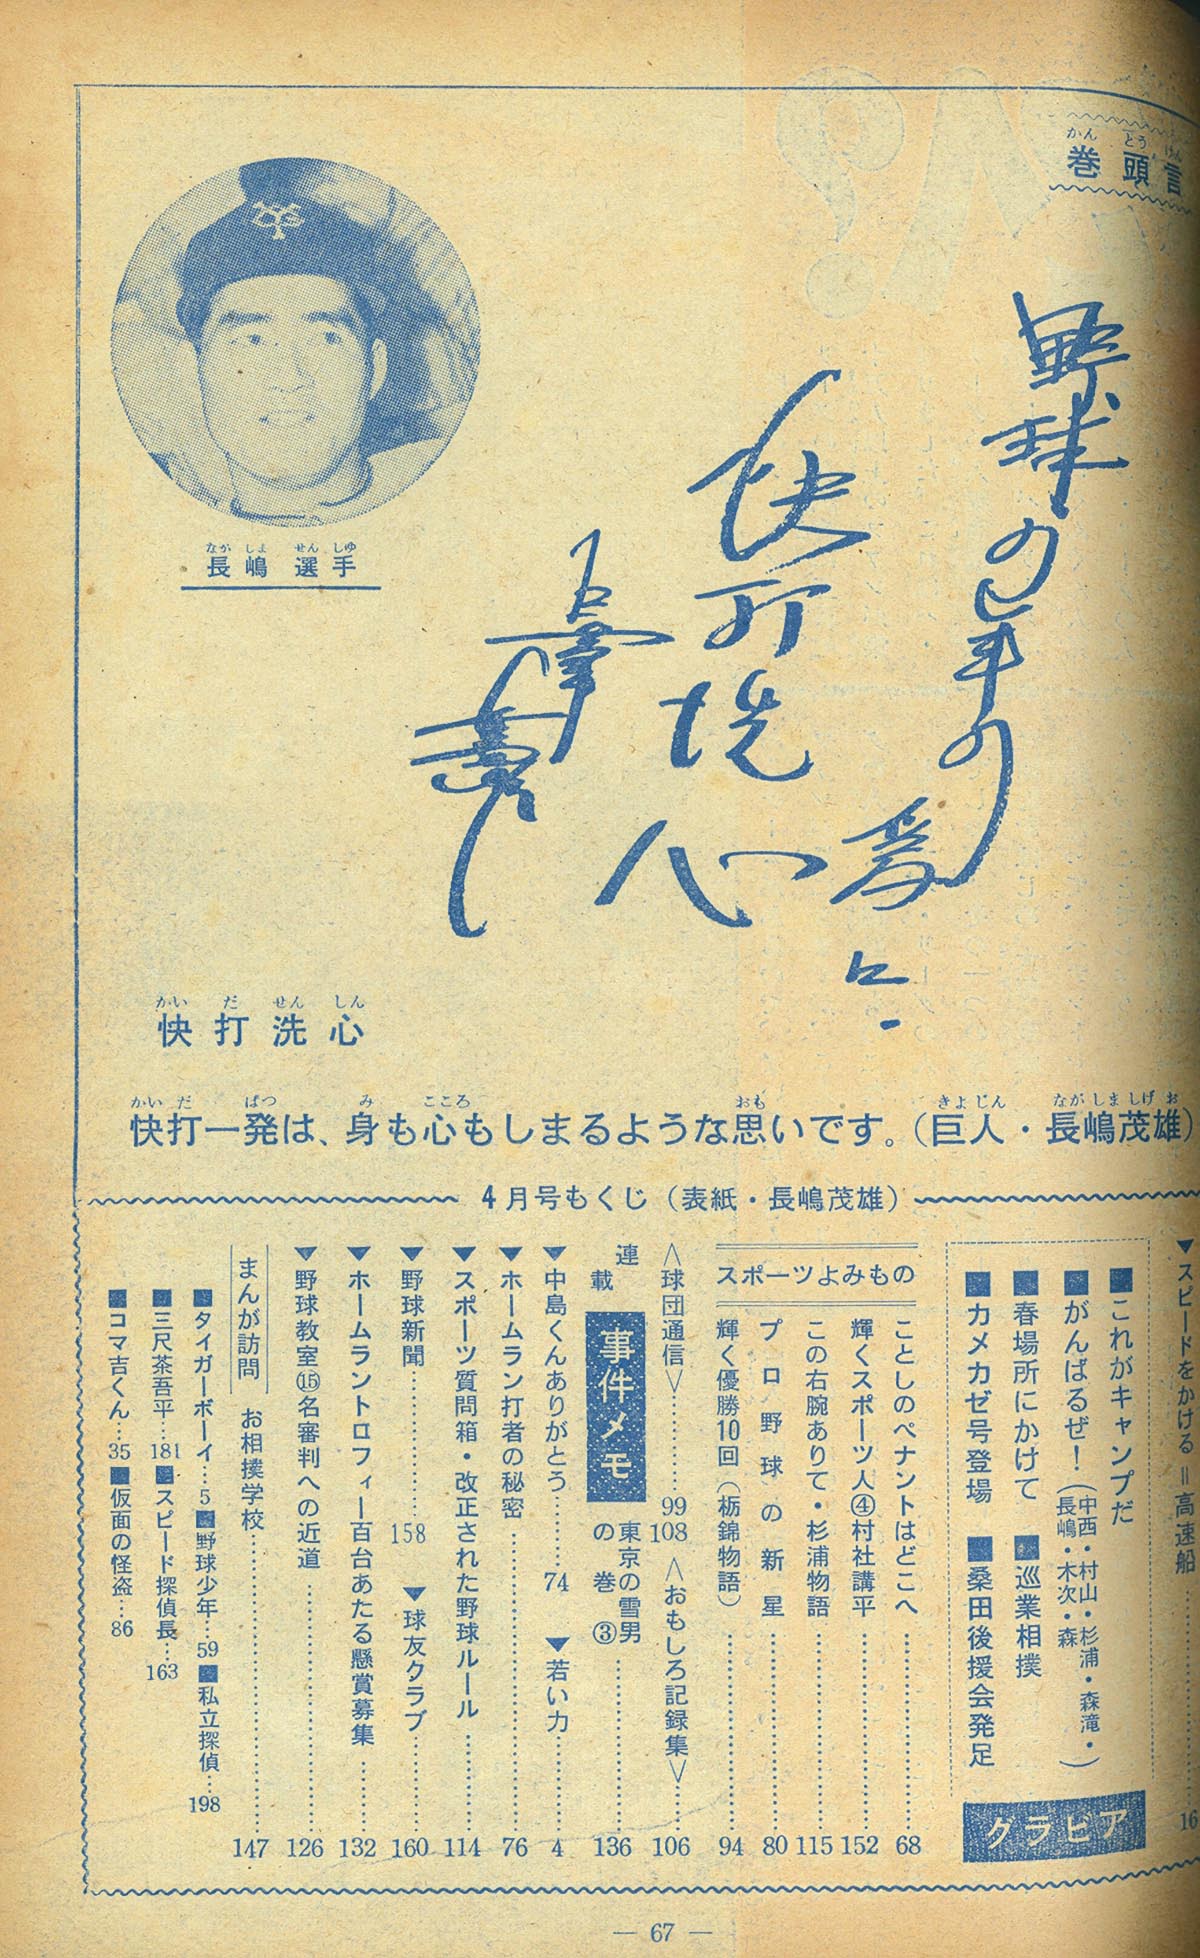 巻頭言
かんとうけん
野球の少年の
為に
快打洗心
巨人軍
長嶋選手
ながしません しゆ
かいだせんしん
快打洗心
かいだ ばつ み こころ おも きよじん ながしましげお
快打一発は、身も心もしまるような思いです。（巨人・長嶋茂雄）
4月号もくじ（表紙・長嶋茂雄）
▼スピードをかける＝高速船……16
グラビア
■これがキャンプだ
■がんばるぜ！（中西・村山・杉浦・森滝・長嶋・木次・森）
■春場所にかけて ■巡業相撲
■カメカゼ号登場 ■桑田後援会発足
スポーツよみもの
ことしのペナントはどこへ……68
輝くスポーツ人④村社講平……152
この右腕ありて・杉浦物語……115
プロ野球の新星……80
輝く優勝10回（栃錦物語）……94
＜球団通信＞……99 108 ＜おもしろ記録集＞……106
連載 事件メモ 東京の雪男の巻③……136
▼中島くんありがとう……74 ▼若い力……4
▼ホームラン打者の秘密……76
▼スポーツ質問箱・改正された野球ルール……114
▼野球新聞……158 ▼球友クラブ……160
▼ホームラントロフィー百台あたる懸賞募集……132
▼野球教室⑮名審判への近道……126
まんが訪問 お相撲学校……147
■タイガーボーイ…5 ■野球少年…59 ■私立探偵…198
■三尺茶吾平…181 ■スピード探偵長…163
■コマ吉くん…35 ■仮面の怪盗…86
— 67 —